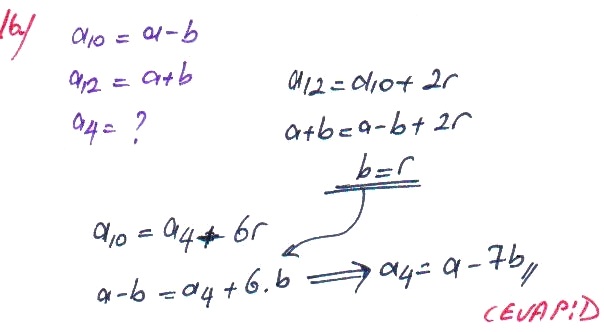 16)
a10 = a-b
a12 = a+b
a4 = ?
a12 = a10 + 2r
a+b = a-b + 2r
b = r
a10 = a4 + 6r
a-b = a4 + 6.b ⟹ a4 = a - 7b //
CEVAP:D